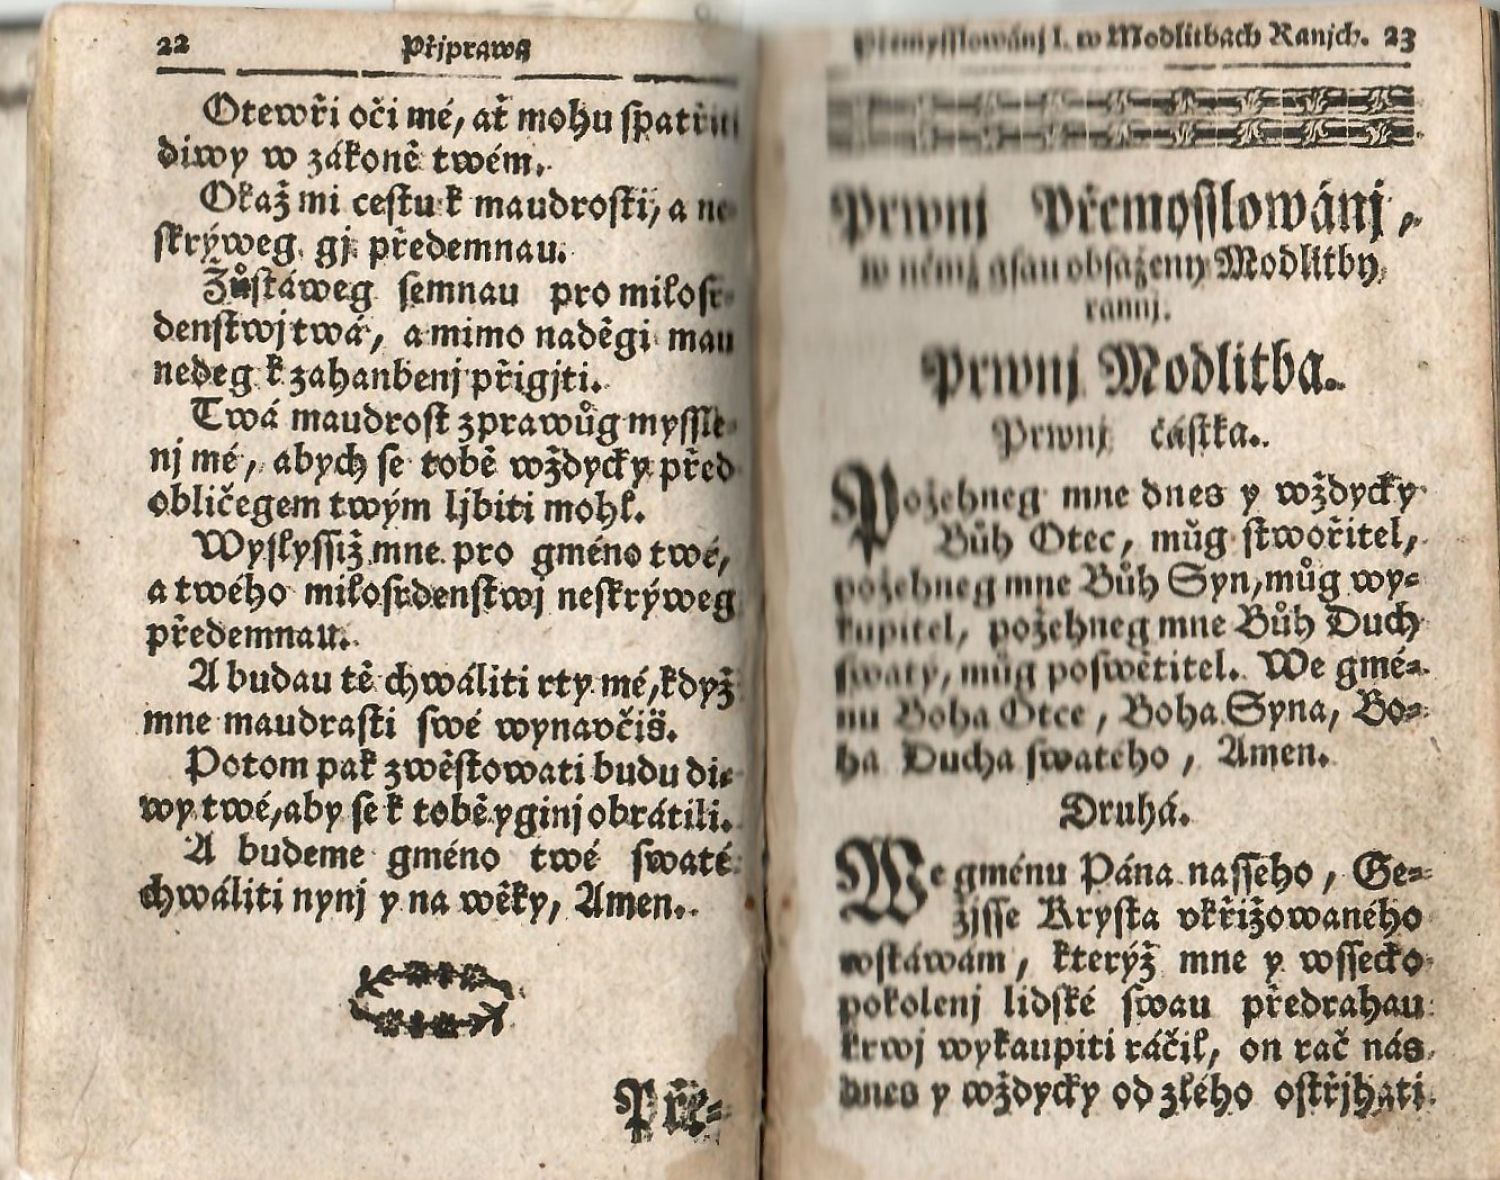 22 Přjprawa
Otewři oči mé, ať mohu spatřiti
diwy w zákoně twém.
Okaž mi cestu k maudrosti, a ne-
skrýweg gj předemnau.
Zůstáweg semnau pro milosr-
denstwj twá, a mimo naděgi mau
nedeg k zahanbenj přigjti.
Twá maudrost zprawůg myssle-
nj mé, abych se tobě wždycky před
obličegem twým ljbiti mohl.
Wyslyssiž mne pro gméno twé,
a twého milosrdenstwj neskrýweg
předemnau.
A budau tě chwáliti rty mé, když
mne maudrasti swé wynavčiš.
Potom pak zwěstowati budu di-
wy twé, aby se k tobě y ginj obrátili.
A budeme gméno twé swaté
chwáliti nynj y na wěky, Amen.
Pře-
Přemysslowánj I. w Modlitbach Ranjch. 23
Prwnj Přemysslowánj,
w němž gsau obsaženy Modlitby
rannj.
Prwnj Modlitba.
Prwnj částka.
Požehneg mne dnes y wždycky
Bůh Otec, můg stwořitel,
požehneg mne Bůh Syn, můg wy-
kupitel, požehneg mne Bůh Duch
swatý, můg poswětitel. We gmé-
nu Boha Otce, Boha Syna, Bo-
ha Ducha swatého, Amen.
Druhá.
We gménu Pána nasseho, Ge-
žjsse Krysta vkřižowaného
wstáwám, kterýž mne y wssecko
pokolenj lidské swau předrahau
krwj wykaupiti ráčil, on rač nás
dnes y wždycky od zlého ostřjhati